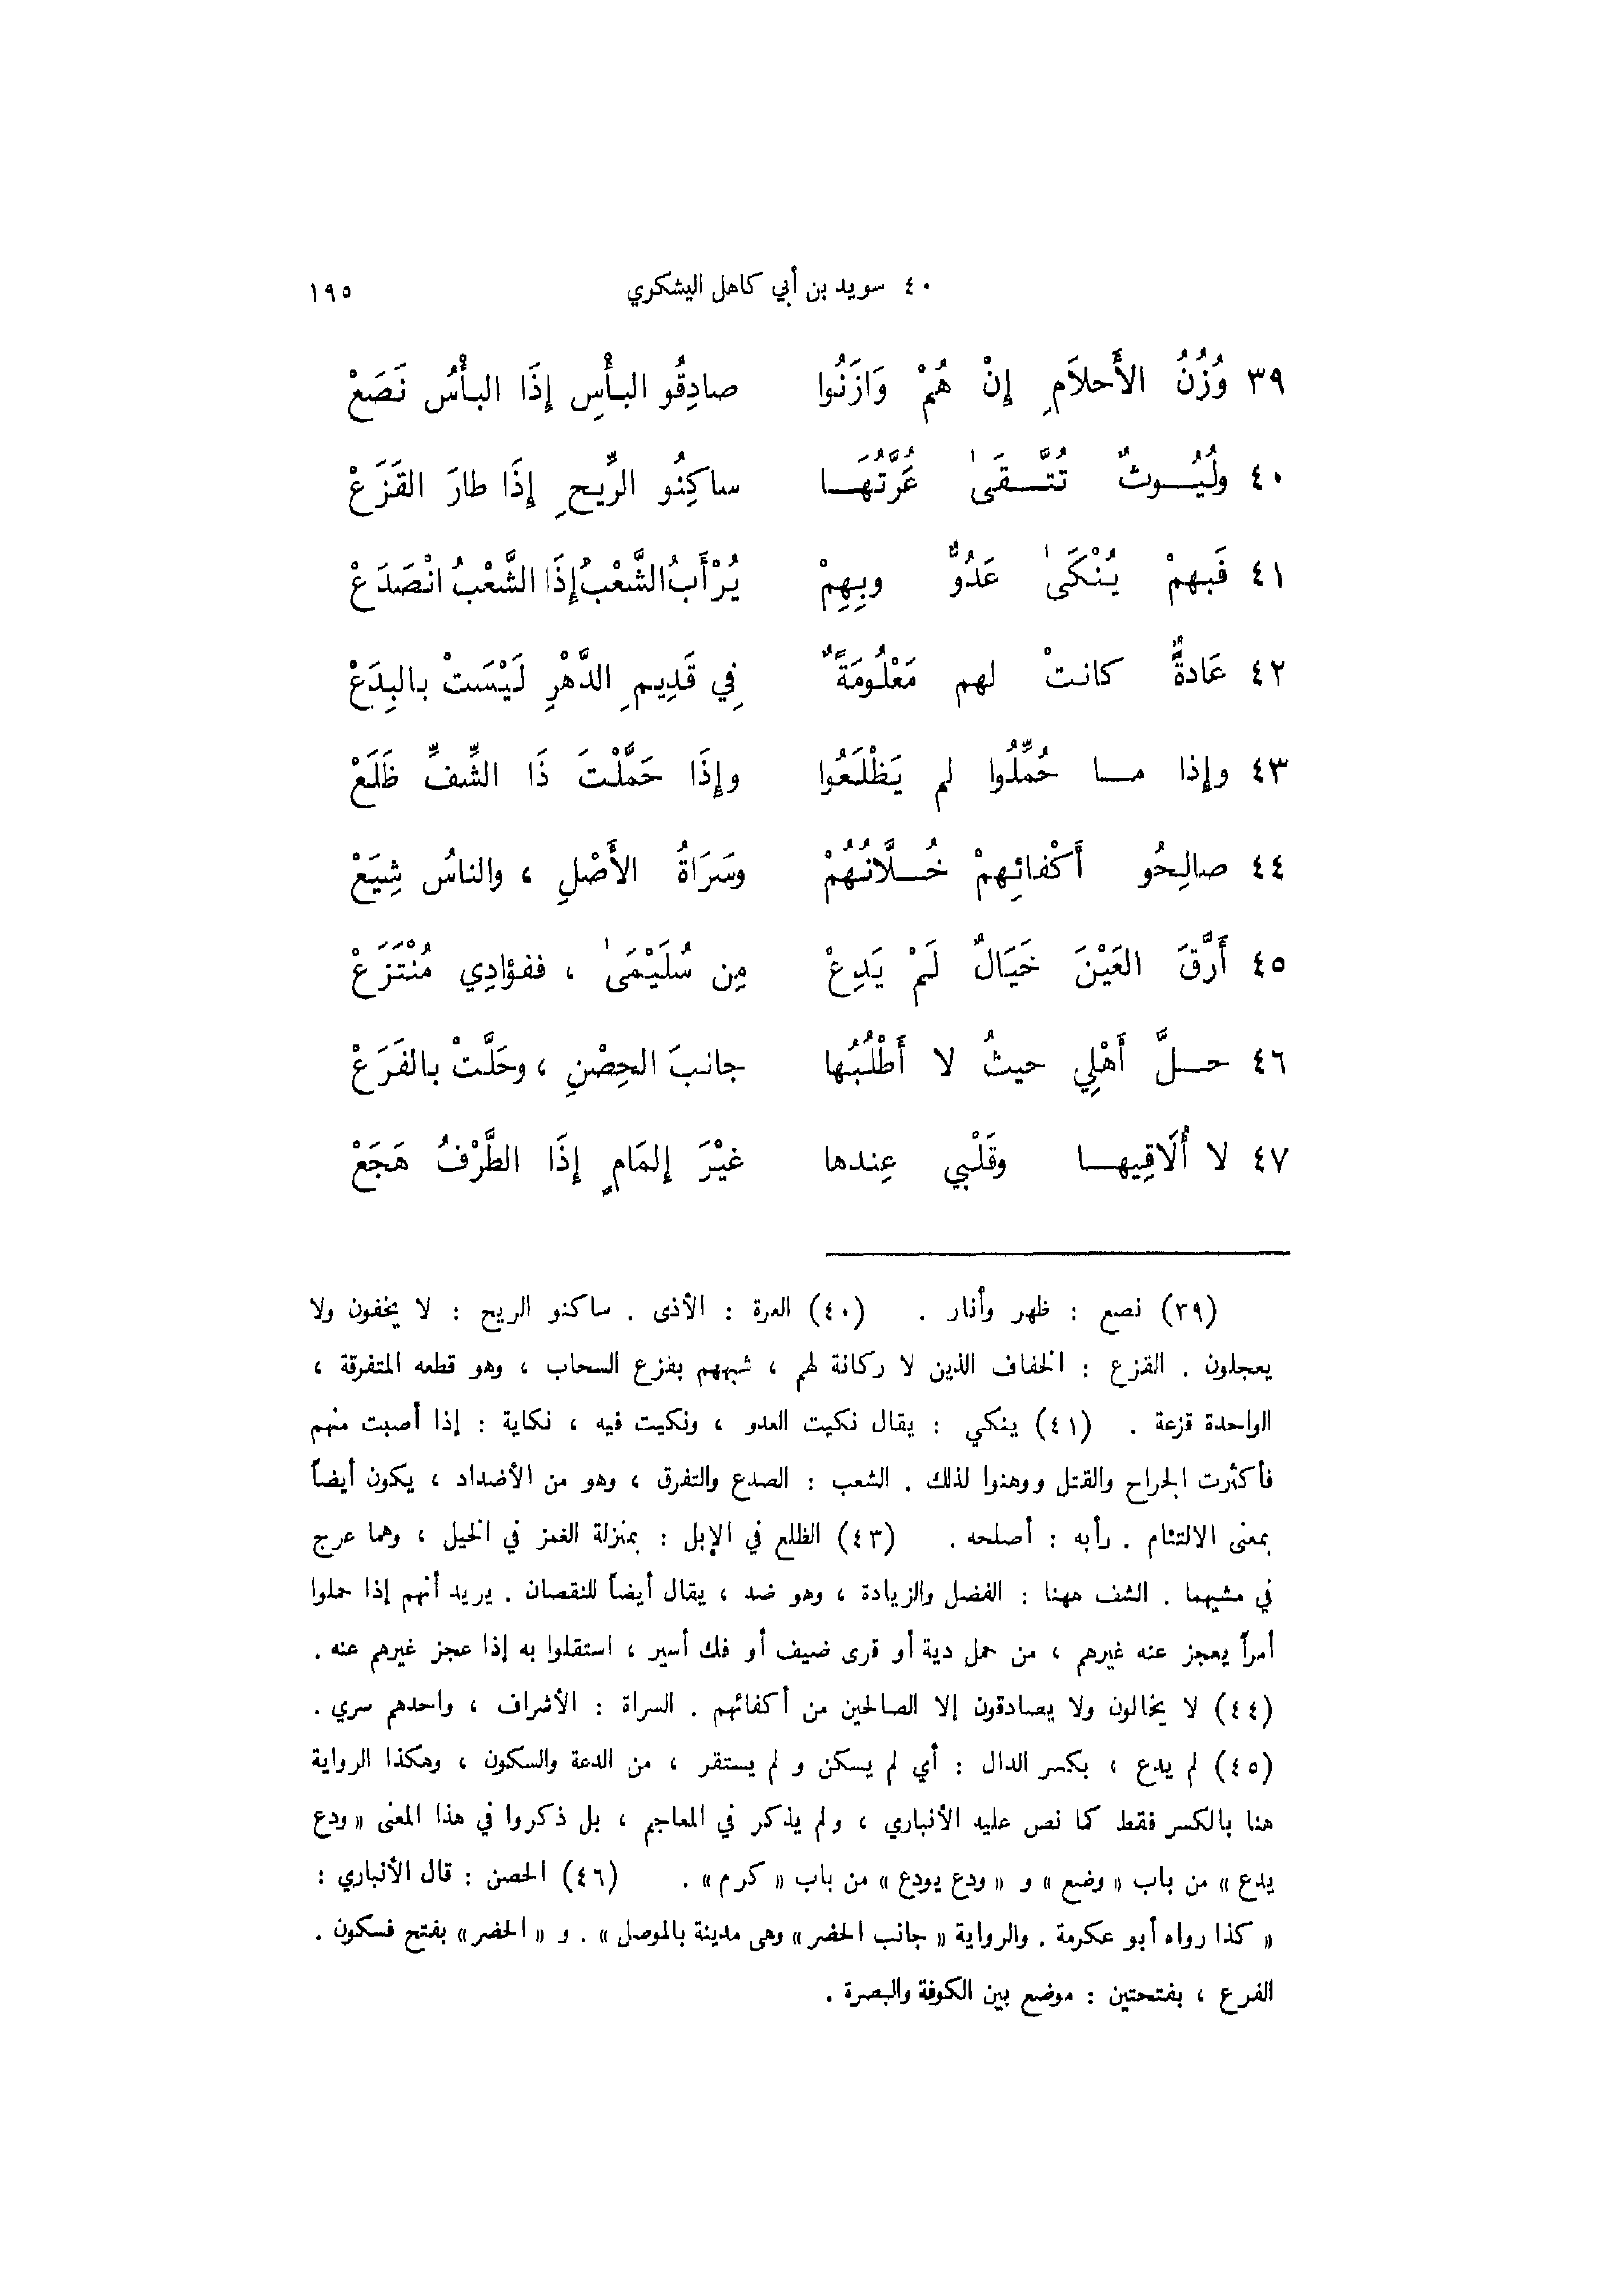 ٤٠ سويد بن أبي كاهل اليشكري ١٩٥
٣٩ وُزُنُ الأَحلاَمِ إِنْ هُمْ وَازَنُوا صادِقُو البأْسِ إِذَا البأْسُ نَصَعْ
٤٠ ولُيُوثٌ تُتَّقَىٰ عُرَّتُهَا ساكِنُو الرِّيحِ إِذَا طارَ القَزَعْ
٤١ فَبِهمْ يُنْكَىٰ عَدُوٌّ وبِهِمْ يُرْأَبُ الشَّعْبُ إِذَا الشَّعْبُ انْصَدَعْ
٤٢ عَادةٌ كانتْ لهم مَعْلُومَةٌ فِي قَدِيمِ الدَّهْرِ لَيْسَتْ بالبِدَعْ
٤٣ وإِذا ما حُمِّلُوا لم يَظْلَعُوا وإِذَا حَمَّلْتَ ذَا الشِّفِّ ظَلَعْ
٤٤ صالِحُو أَكْفائِهِمْ خُلَّانُهُمْ وسَرَاةُ الأَصْلِ ، والناسُ شِيَعْ
٤٥ أَرَّقَ العَيْنَ خَيَالٌ لَمْ يَدِعْ مِن سُلَيْمَىٰ ، ففؤادِي مُنْتَزَعْ
٤٦ حلَّ أَهْلِي حيثُ لا أَطْلُبُها جانبَ الحِصْنِ ، وحَلَّتْ بالفَرَعْ
٤٧ لا أُلَاقِيها وقَلْبي عِندها غيْرَ إِلمَامٍ إِذَا الطَّرْفُ هَجَعْ
(٣٩) نصع : ظهر وأنار . (٤٠) العرة : الأذى . ساكنو الريح : لا يخفون ولا
يعجلون . القزع : الخفاف الذين لا ركانة لهم ، شبههم بقزع السحاب ، وهو قطعه المتفرقة ،
الواحدة قزعة . (٤١) ينكي : يقال نكيت العدو ، ونكيت فيه ، نكاية : إذا أصبت منهم
فأكثرت الجراح والقتل ووهنوا لذلك . الشعب : الصدع والتفرق ، وهو من الأضداد ، يكون أيضاً
بمعنى الالتئام . رأبه : أصلحه . (٤٣) الظلع في الإبل : بمنزلة الغمز في الخيل ، وهما عرج
في مشيهما . الشف ههنا : الفضل والزيادة ، وهو ضد ، يقال أيضاً للنقصان . يريد أنهم إذا حملوا
أمراً يعجز عنه غيرهم ، من حمل دية أو قرى ضيف أو فك أسير ، استقلوا به إذا عجز غيرهم عنه .
(٤٤) لا يخالون ولا يصادقون إلا الصالحين من أكفائهم . السراة : الأشراف ، واحدهم سري .
(٤٥) لم يدع ، بكسر الدال : أي لم يسكن و لم يستقر ، من الدعة والسكون ، وهكذا الرواية
هنا بالكسر فقط كما نص عليه الأنباري ، ولم يذكر في المعاجم ، بل ذكروا في هذا المعنى « ودع
يدع » من باب « وضع » و « ودع يودع » من باب « كرم » . (٤٦) الحصن : قال الأنباري :
« كذا رواه أبو عكرمة . والرواية « جانب الحضر » وهى مدينة بالموصل » . و « الحضر » بفتح فسكون .
الفرع ، بفتحتين : موضع بين الكوفة والبصرة .